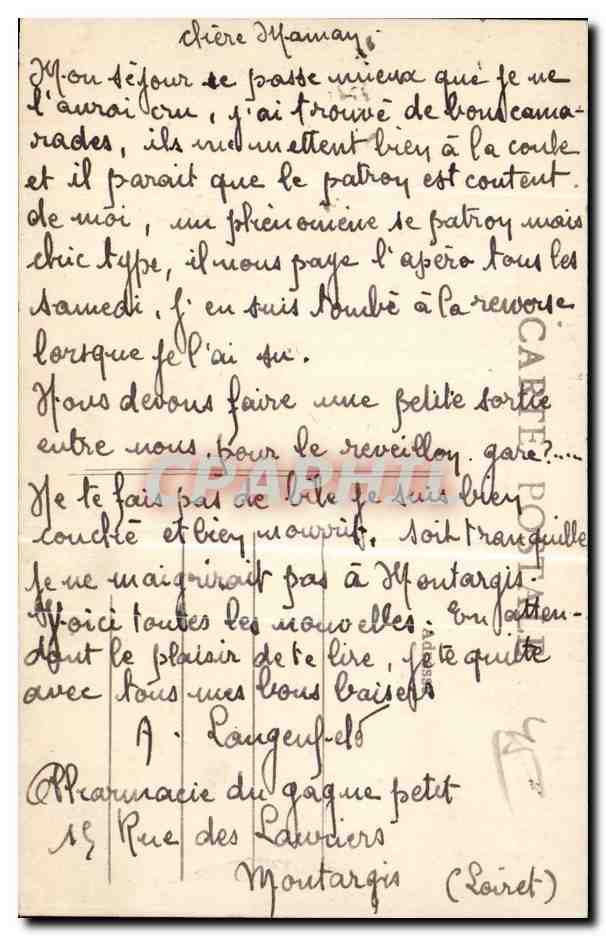 chère Maman,
Mon séjour se passe mieux que je ne
l'aurai cru, j'ai trouvé de bons cama-
rades, ils me mettent bien à la coule
et il parait que le patron est content.
de moi, un phénomène se patron mais
chic type, il nous paye l'apéro tous les
samedi, j'en suis tombé à la renverse
lorsque je l'ai su.
Nous devons faire une petite sortie
entre nous, pour le reveillon. gare?....
Ne te fais pas de bile je suis bien
couché et bien nourrit, soit tranquille
je ne maigrirait pas à Montargis.
Voici toutes les nouvelles. En atten-
dant le plaisir de te lire, je te quitte
avec tous mes bons baisers
A. Langenfeld
Pharmacie du gagne petit
15 Rue des Lauriers
Montargis (Loiret)
CARTE POSTALE
Adresse
CPAPHIL